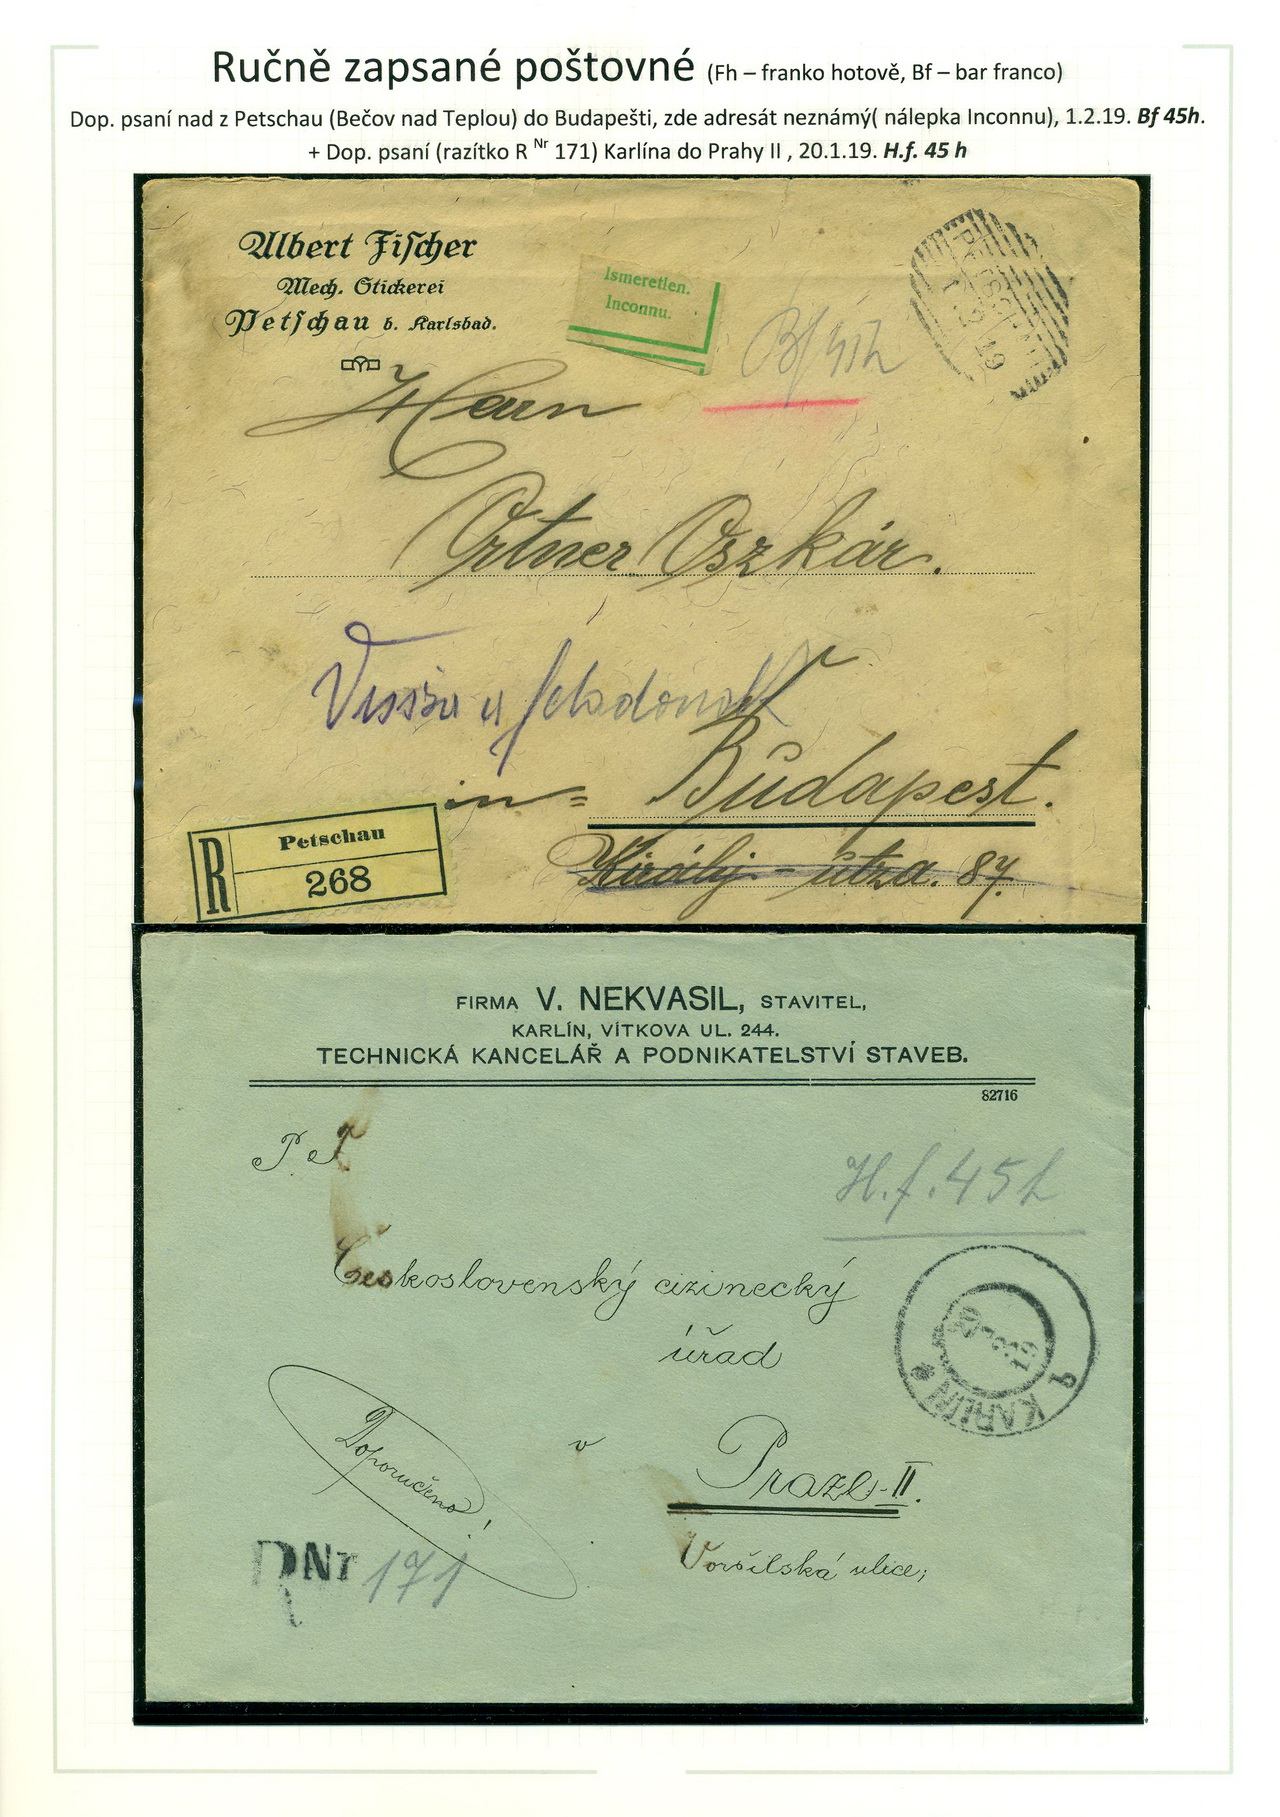 Ručně zapsané poštovné (Fh – franko hotově, Bf – bar franco)
Dop. psaní nad z Petschau (Bečov nad Teplou) do Budapešti, zde adresát neznámý( nálepka Inconnu), 1.2.19. Bf 45h.
+ Dop. psaní (razítko R Nr 171) Karlína do Prahy II , 20.1.19. H.f. 45 h
Albert Fischer
Mech. Stickerei
Petschau b. Karlsbad.
Ismeretlen.
Inconnu.
Bf 45h
1 2 19
Herrn
Ortner Oszkár.
Vissza a feladónak
in= Budapest.
Király-utza. 87.
R Petschau
268
FIRMA V. NEKVASIL, STAVITEL,
KARLÍN, VÍTKOVA UL. 244.
TECHNICKÁ KANCELÁŘ A PODNIKATELSTVÍ STAVEB.
82716
H.f. 45h
Československý cizinecký
úřad
KARLIN
v Praze-II.
Doporučeno!
Voršilská ulice;
R Nr 171